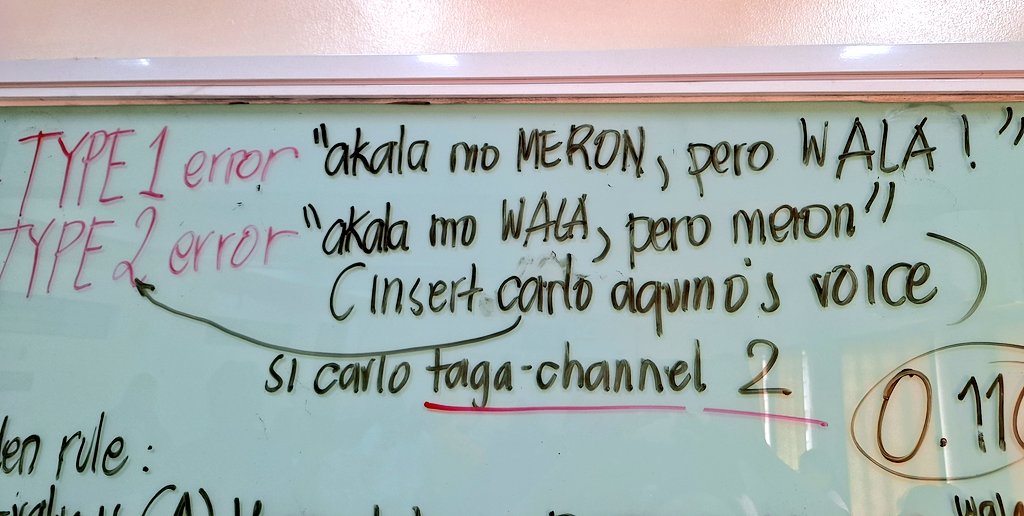 TYPE 1 error "akala mo MERON, pero WALA!"
TYPE 2 error "akala mo WALA, pero meron"
(insert carlo aquino's voice)
si carlo taga-channel 2
0.11
len rule: